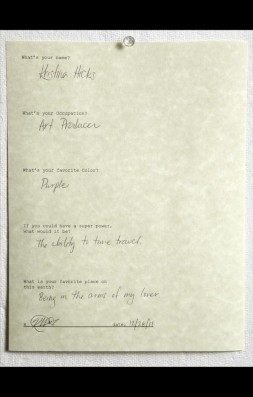 What's your name?
Kristina Hicks
What's your Occupation?
Art Producer
What's your favorite Color?
Purple
If you could have a super power,
what would it be?
The ability to time travel.
What is your favorite place on
this earth?
Being in the arms of my lover
date: